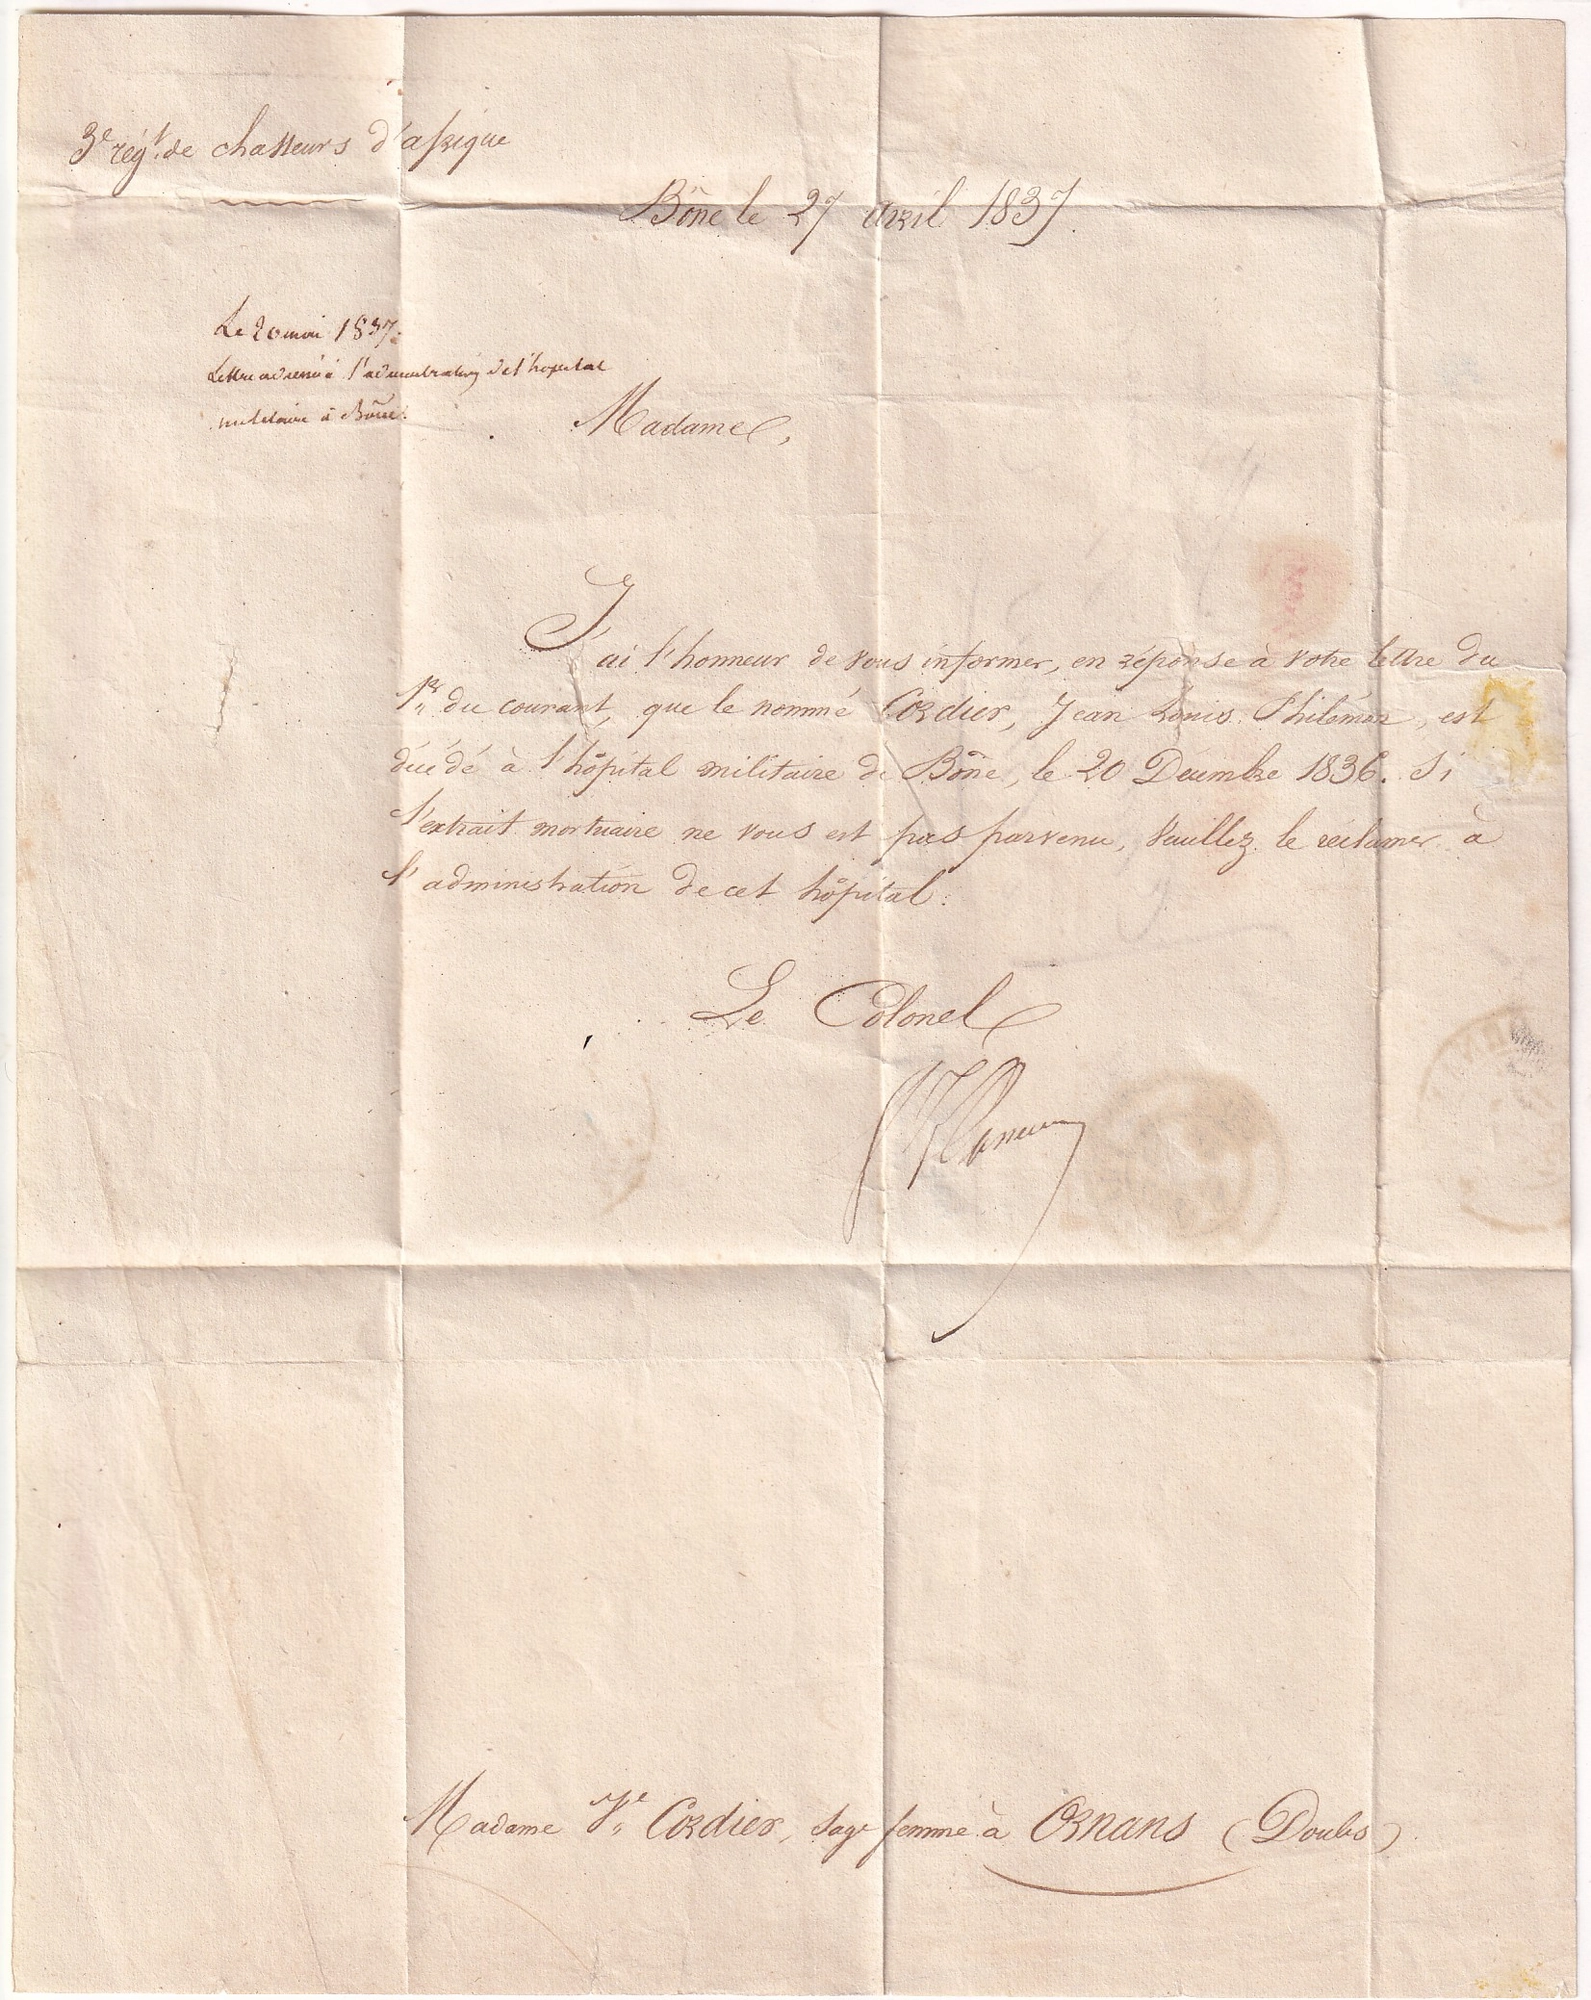 3e régt. de chasseurs d'afrique
Bône le 27 avril 1837.
Le 20 mai 1837.
Lettre adressée à l'administration de l'hopital
militaire à Bône.
Madame,
J'ai l'honneur de vous informer, en réponse à votre lettre du
1er du courant, que le nommé Cordier, Jean Louis Philémon, est
décédé à l'hôpital militaire de Bône, le 20 Décembre 1836. Si
l'extrait mortuaire ne vous est pas parvenu, veuillez le réclamer à
l'administration de cet hôpital.
Le Colonel
Madame Ve Cordier, sage femme à Ornans (Doubs)